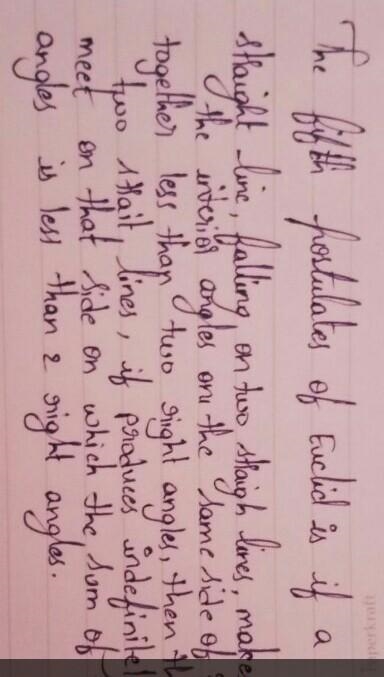 The fifth postulates of Euclid is if a
straight line, falling on two straigh lines, make
the interior angles on the same side of
together less than two right angles, then th
two strait lines, if produces indefinitel
meet on that side on which the sum of
angles is less than 2 right angles.